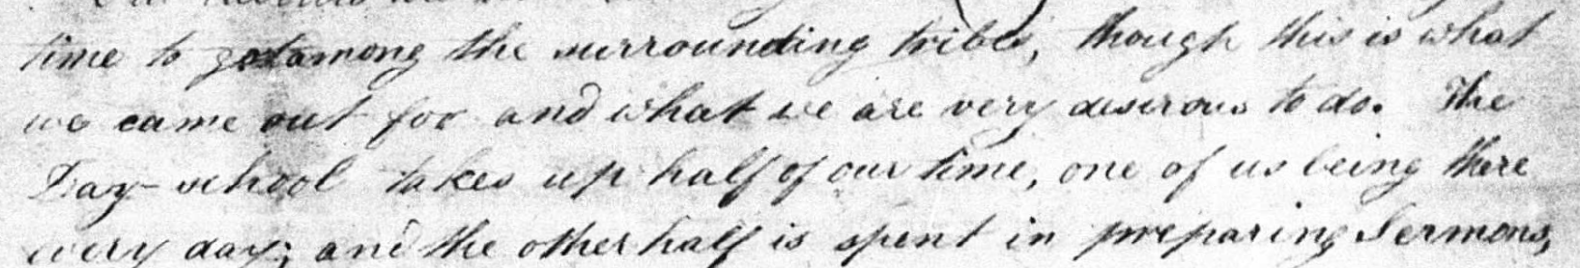 time to get among the surrounding tribes, though this is what
we came out for and what we are very desirous to do. The
Day-school takes up half of our time, one of us being there
every day; and the other half is spent in preparing Sermons,